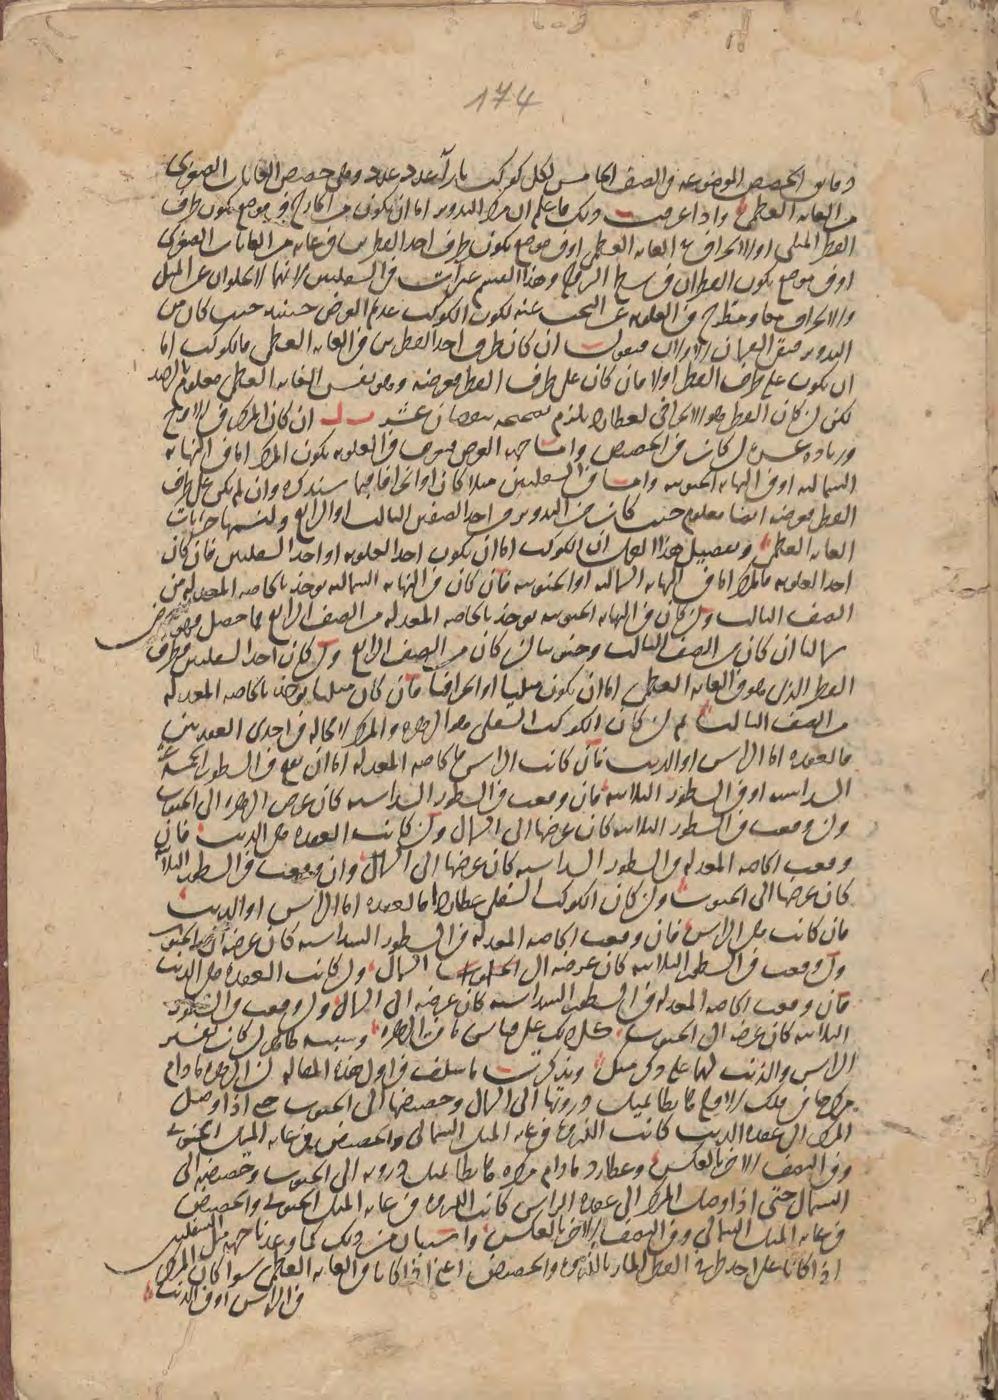 174
دقايق الحصص الموضوعة في الصف الخامس لكل كوكب بازاء عدد عدد وهي حصص الغايات الصغرى
من الغاية العظمى واذا عرفت ذلك فاعلم ان مركز التدوير اما ان يكون من الخارج في موضع يكون طرف
القطر المثلي او الانحرافي في الغاية العظمى او في موضع يكون طرف احد القطرين في غاية من الغايات الصغرى
او في موضع يكون القطران في سطح وهذا القسم في السفليين لانهما لا يخلوان عن الميل
والانحراف معا ومطرح في العلوية عن البحث عنه لكون الكوكب عديم العرض حينئذ حيث كان من
التدوير فبقي القسمان الاولان فنقول ان كان طرف احد القطرين في الغاية العظمى فالكوكب اما
ان يكون على طرف القطر اولا فان كان على طرف القطر فعرضه وهو نفس الغاية العظمى معلوم بالرصد
لكن ان كان القطر هو الانحرافي لعطارد يلزم تصحيحه بنقصان عشر ان كان المركز في الاوج
وزيادة عشره ان كان في الحضيض واما جهة العرض فيعرف في العلوية بكون المركز اما في النهاية
الشمالية او في النهاية الجنوبية واما في السفليين ميلا كان او انحرافا فبما سنذكره وان لم يكن على طرف
القطر فعرضه ايضا معلوم حيث كان من التدوير من احد الصفين الثالث او الرابع ولنسمها جزئيات
الغاية العظمى وتفصيل هذا العمل ان الكوكب اما ان يكون احد العلوية او احد السفليين فان كان
احد العلوية فالمركز اما في النهاية الشمالية او الجنوبية فان كان في النهاية الشمالية يوخذ بالخاصة المعدلة من
الصف الثالث وان كان في النهاية الجنوبية يوخذ بالخاصة المعدلة من الصف الرابع فما حصل فهو عرض
شماليا ان كان من الصف الثالث وجنوبيا ان كان من الصف الرابع وان كان احد السفليين فطرف
القطر الذي هو في الغاية العظمى اما ان يكون ميليا او انحرافيا فان كان ميليا يوخذ بالخاصة المعدلة
من الصف الثالث ثم ان كان الكوكب السفلي هو الزهرة والمركز لا محالة في احدى العقدتين
فالعقدة اما الراس او الذنب فان كانت الراس فالخاصة المعدلة اما ان تقع في السطور الخمسة عشر
السداسية او في السطور الثلاثية فان وقعت في السطور السداسية كان عرض الزهرة الى الجنوب
وان وقعت في السطور الثلاثية كان عرضها الى الشمال وان كانت العقدة هي الذنب فان
وقعت الخاصة المعدلة في السطور السداسية كان عرضها الى الشمال وان وقعت في السطور الثلاثية
كان عرضها الى الجنوب وان كان الكوكب السفلي عطارد فالعقدة اما الراس او الذنب
فان كانت هي الراس فان وقعت الخاصة المعدلة في السطور السداسية كان عرضه الى الجنوب
وان وقعت في السطور الثلاثية كان عرضه الى الشمال وان كانت العقدة هي الذنب
فان وقعت الخاصة المعدلة في السطور السداسية كان عرضه الى الشمال وان وقعت في السطور
الثلاثية كان عرضه الى الجنوب كل ذلك على قياس ما في الزهرة وسببه
الراس والذنب لهما على ذكر منك وتذكرت ما سلف في اول هذه المقالة ان الزهرة مادام
مركزها في فلك الاوج ذروتها الى الشمال وحضيضها الى الجنوب حتى اذا وصل
المركز الى عقدة الذنب كانت الذروة في غاية الميل الشمالي والحضيض في غاية الميل الجنوبي
وفي النصف الاخر بالعكس وعطارد مادام مركزه ذروته الى الجنوب وحضيضه الى
الشمال حتى اذا وصل المركز الى عقدة الراس كانت الذروة في غاية الميل الجنوبي والحضيض
في غاية الميل الشمالي وفي النصف الاخر بالعكس واستبان من ذلك كما وعدنا جهة ميل السفليين
اذا كانا على احد طرفي القطر المار بالذروة والحضيض اعني اذا كانا في الغاية العظمى سواء كان المركز
في الراس او في الذنب